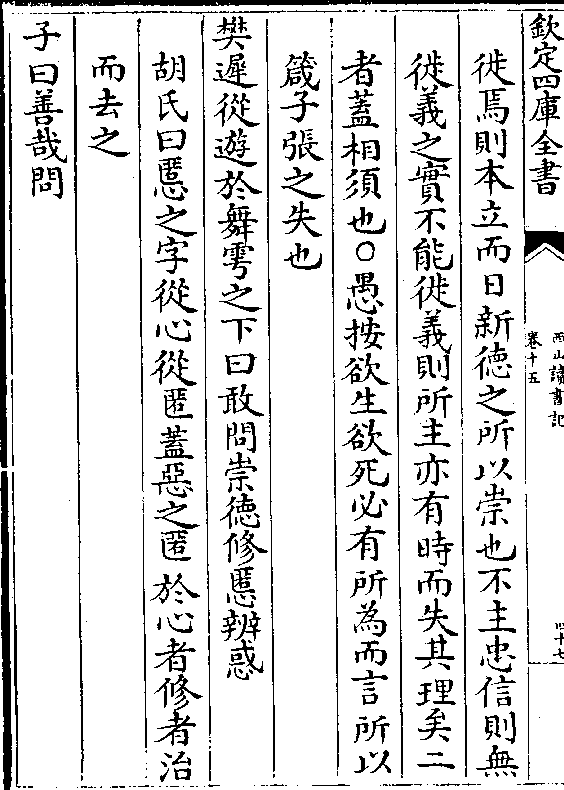 欽定四庫全書
西山讀書記
卷十五
四十七
徙焉則本立而日新德之所以崇也不主忠信則無
徙義之實不能徙義則所主亦有時而失其理矣二
者蓋相須也○愚按欲生欲死必有所為而言所以
箴子張之失也
樊遲從遊於舞雩之下曰敢問崇德修慝辨惑
胡氏曰慝之字從心從匿蓋惡之匿於心者修者治
而去之
子曰善哉問